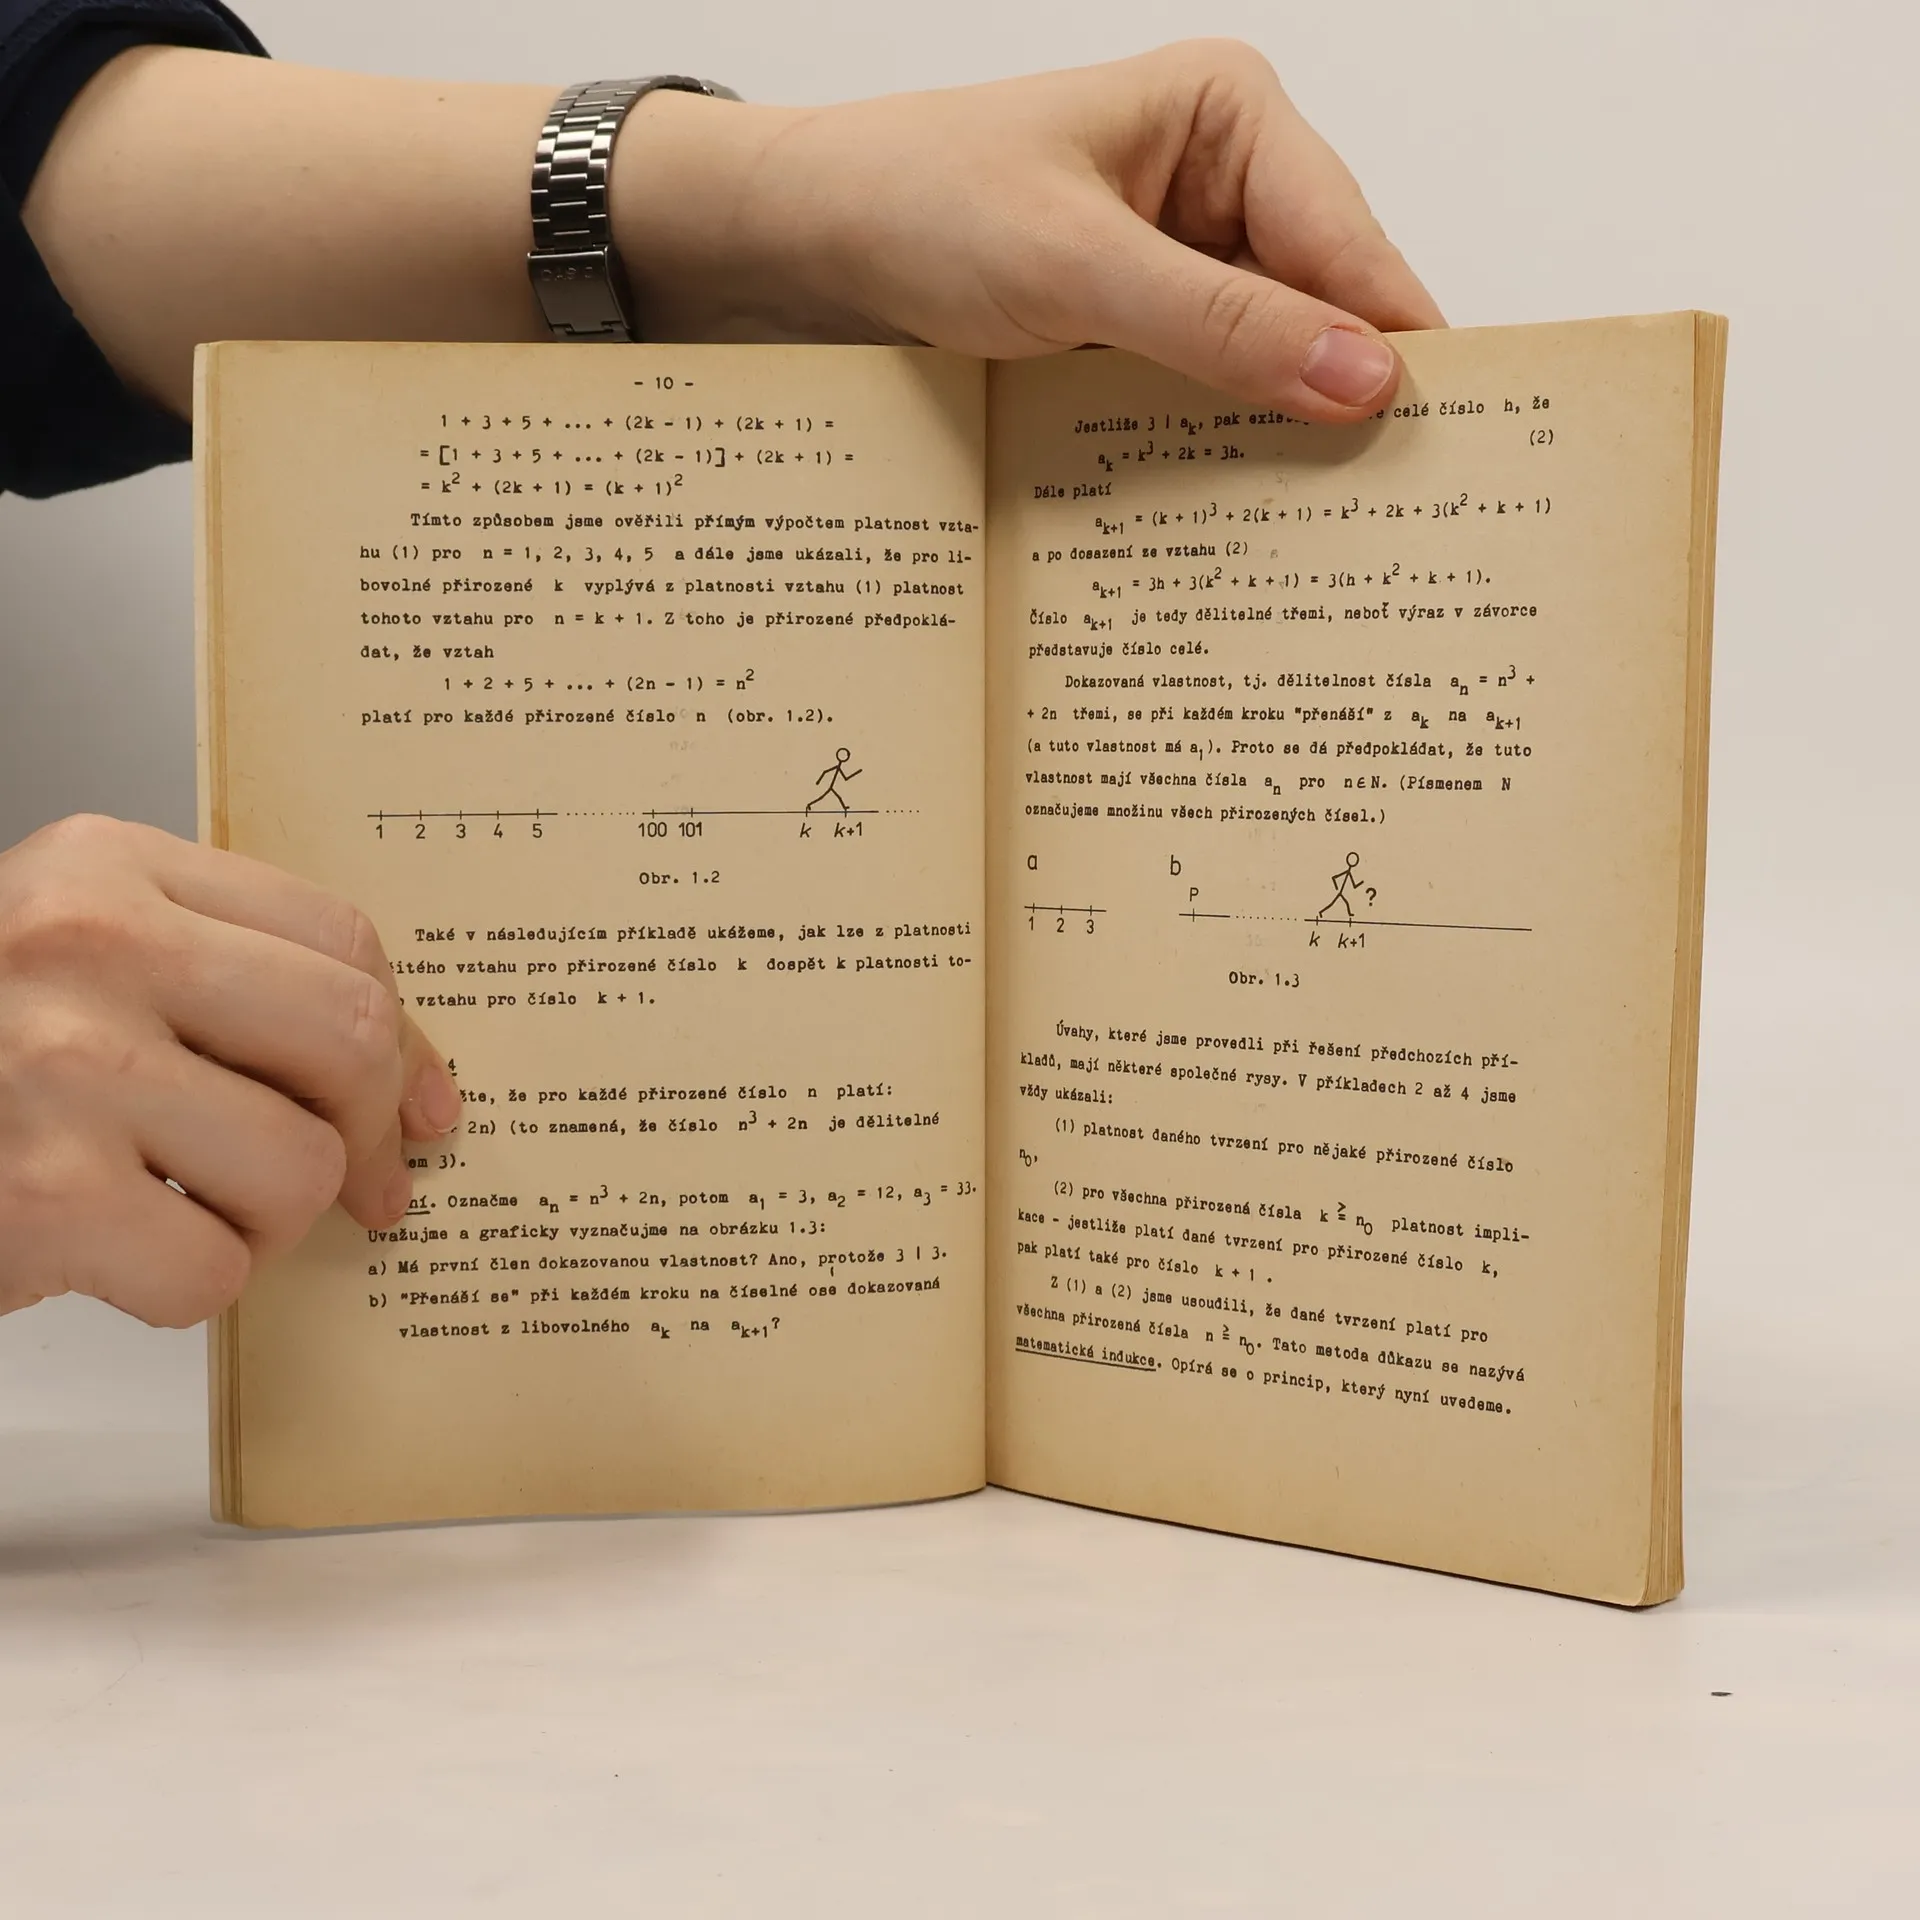 - 10 -
1 + 3 + 5 + ... + (2k - 1) + (2k + 1) =
= [1 + 3 + 5 + ... + (2k - 1)] + (2k + 1) =
= k² + (2k + 1) = (k + 1)²
Tímto způsobem jsme ověřili přímým výpočtem platnost vzta-
hu (1) pro n = 1, 2, 3, 4, 5 a dále jsme ukázali, že pro li-
bovolné přirozené k vyplývá z platnosti vztahu (1) platnost
tohoto vztahu pro n = k + 1. Z toho je přirozené předpoklá-
dat, že vztah
1 + 2 + 5 + ... + (2n - 1) = n²
platí pro každé přirozené číslo n (obr. 1.2).
1 2 3 4 5 100 101 k k+1
Obr. 1.2
Také v následujícím příkladě ukážeme, jak lze z platnosti
vztahu pro přirozené číslo k dospět k platnosti to-
vztahu pro číslo k + 1.
4
že pro každé přirozené číslo n platí:
2n) (to znamená, že číslo n³ + 2n je dělitelné
3).
Označme aₙ = n³ + 2n, potom a₁ = 3, a₂ = 12, a₃ = 33.
Uvažujme a graficky vyznačujme na obrázku 1.3:
a) Má první člen dokazovanou vlastnost? Ano, protože 3 | 3.
b) "Přenáší se" při každém kroku na číselné ose dokazovaná
vlastnost z libovolného aₖ na aₖ₊₁?
Jestliže 3 | aₖ, pak celé číslo h, že
aₖ = k³ + 2k = 3h. (2)
Dále platí
aₖ₊₁ = (k + 1)³ + 2(k + 1) = k³ + 2k + 3(k² + k + 1)
a po dosazení ze vztahu (2)
aₖ₊₁ = 3h + 3(k² + k + 1) = 3(h + k² + k + 1).
Číslo aₖ₊₁ je tedy dělitelné třemi, neboť výraz v závorce
představuje číslo celé.
Dokazovaná vlastnost, tj. dělitelnost čísla aₙ = n³ +
+ 2n třemi, se při každém kroku "přenáší" z aₖ na aₖ₊₁
(a tuto vlastnost má a₁). Proto se dá předpokládat, že tuto
vlastnost mají všechna čísla aₙ pro n∈N. (Písmenem N
označujeme množinu všech přirozených čísel.)
a b
P ?
1 2 3 k k+1
Obr. 1.3
Úvahy, které jsme provedli při řešení předchozích pří-
kladů, mají některé společné rysy. V příkladech 2 až 4 jsme
vždy ukázali:
(1) platnost daného tvrzení pro nějaké přirozené číslo
n₀,
(2) pro všechna přirozená čísla k ≧ n₀ platnost impli-
kace - jestliže platí dané tvrzení pro přirozené číslo k,
pak platí také pro číslo k + 1 .
Z (1) a (2) jsme usoudili, že dané tvrzení platí pro
všechna přirozená čísla n ≧ n₀. Tato metoda důkazu se nazývá
matematická indukce. Opírá se o princip, který nyní uvedeme.